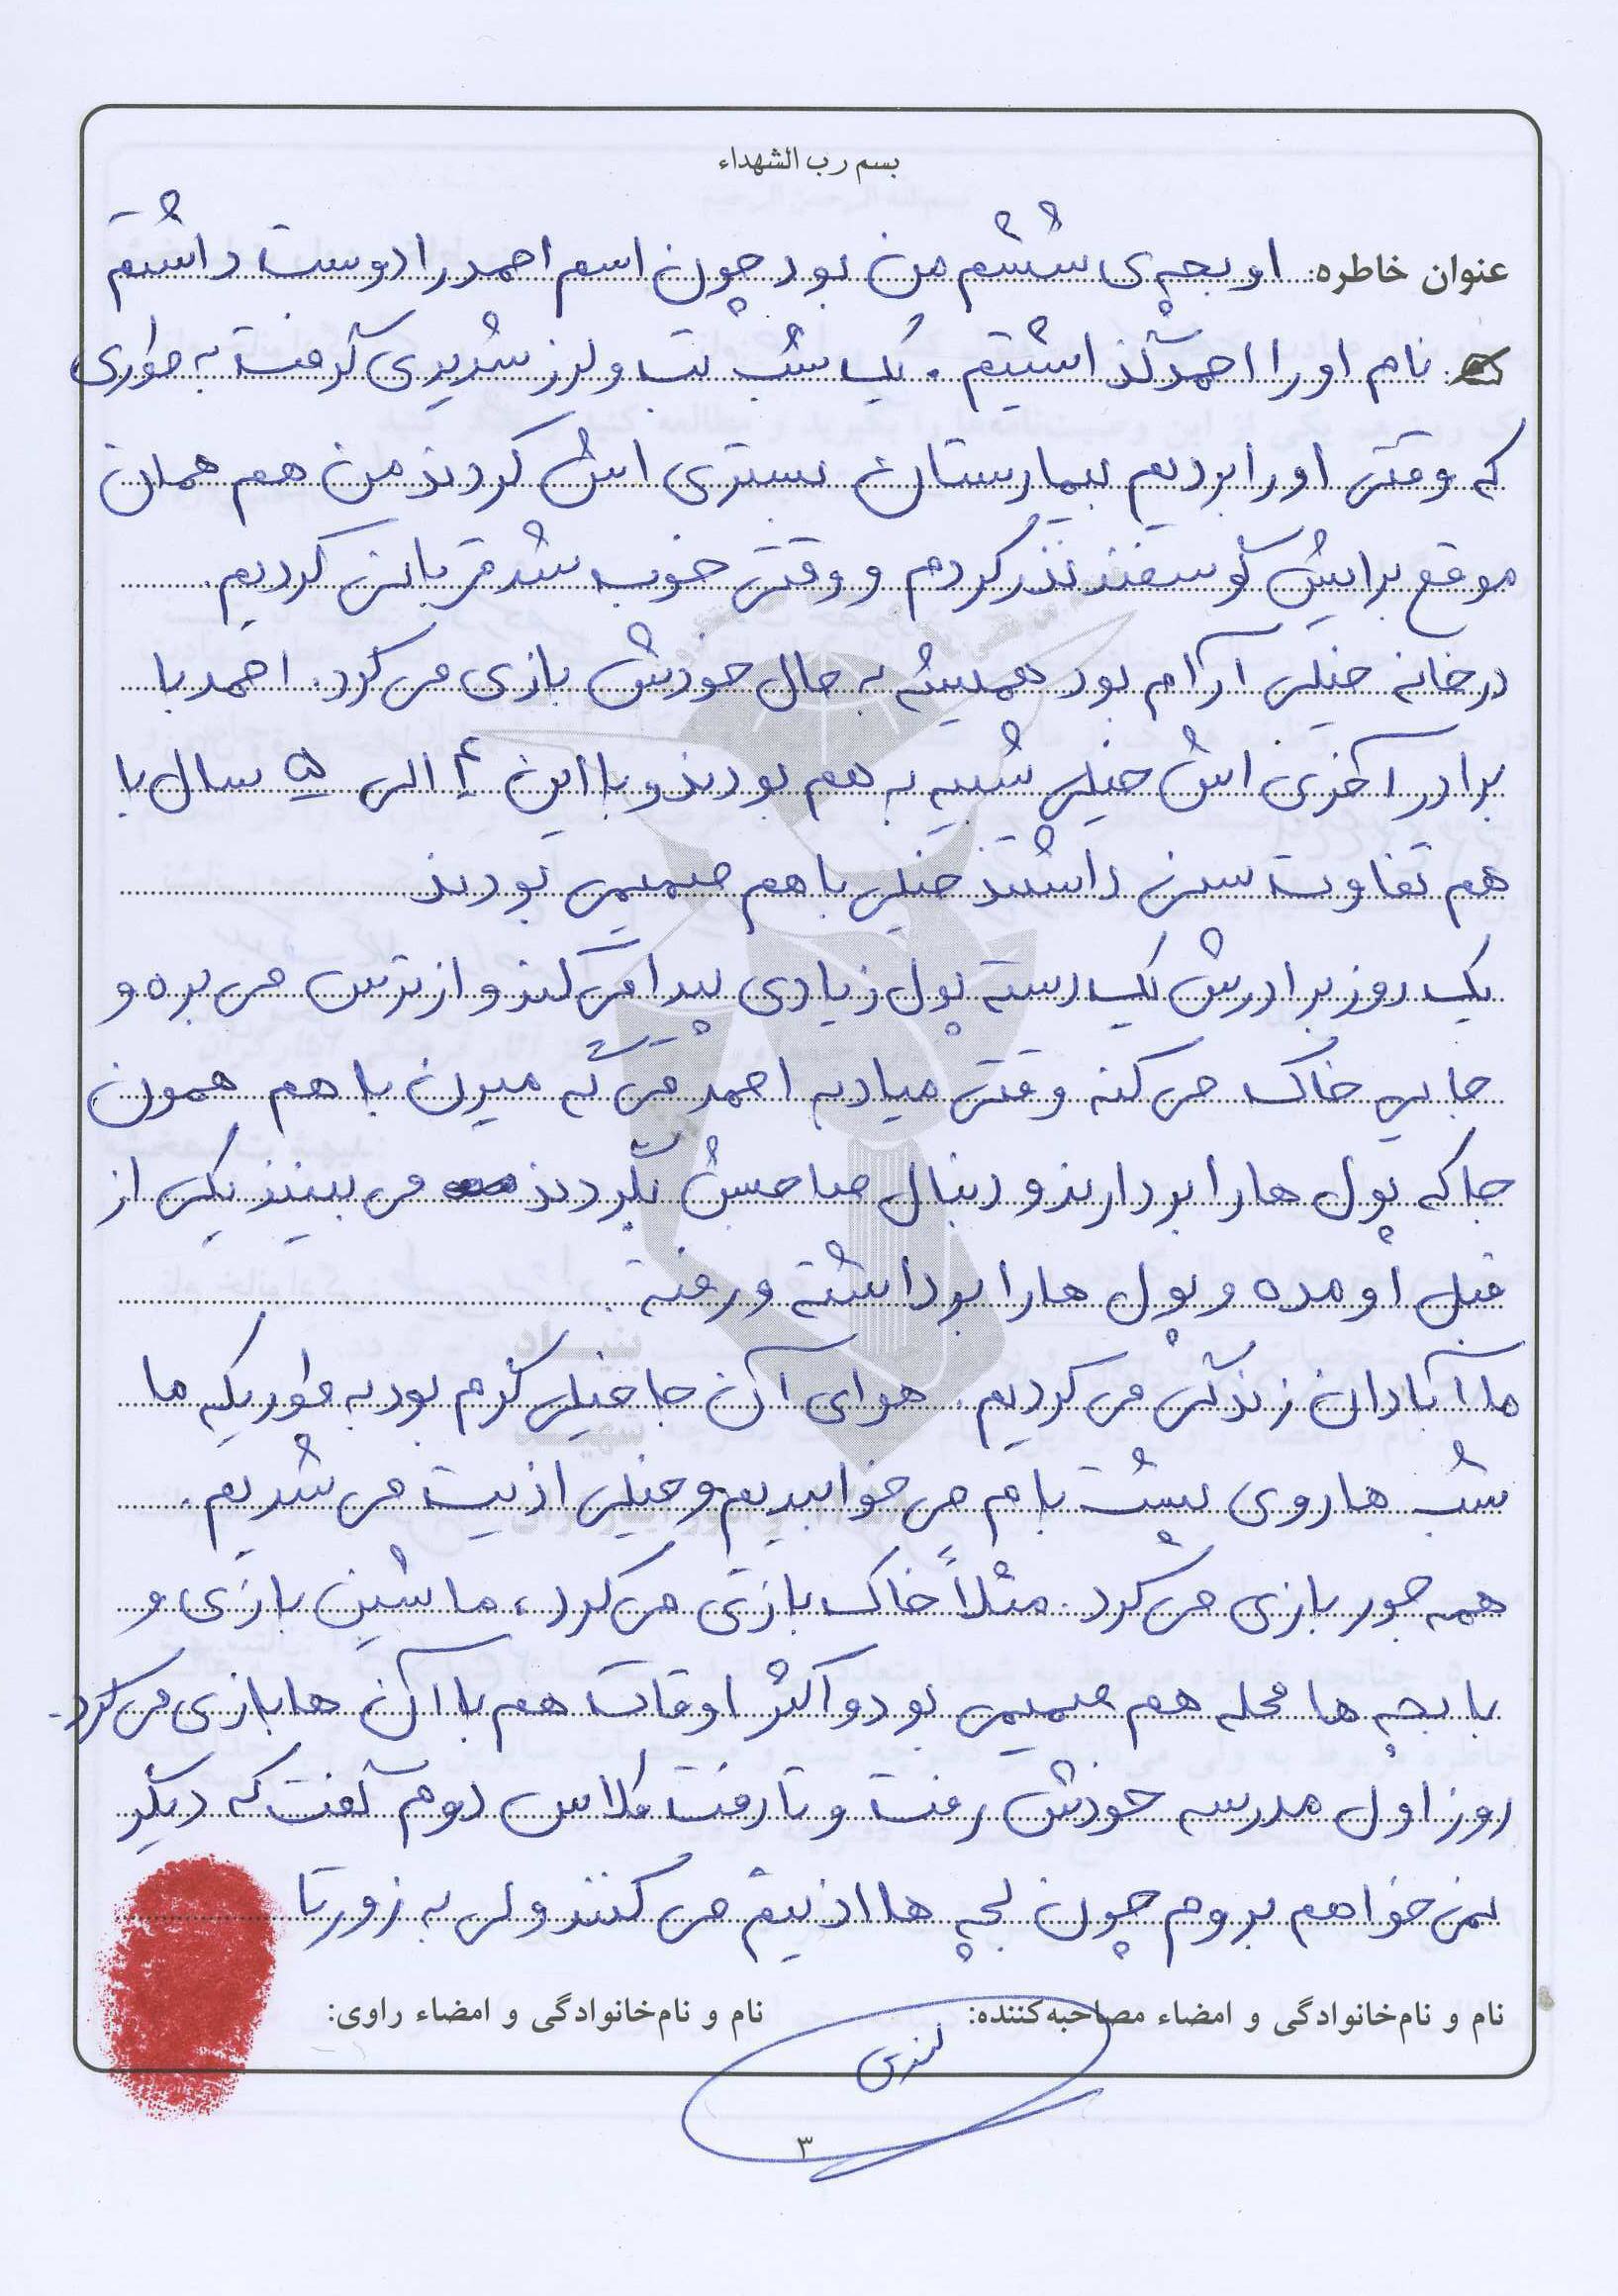 بسم رب الشهداء
عنوان خاطره: او بچه‌ی ششم من بود چون اسم احمد را دوست داشتم
نام او را احمد گذاشتیم. یک شب تب و لرز شدیدی گرفت به طوری
که وقتی او را بردیم بیمارستان بستری اش کردند من هم همان
موقع برایش گوسفند نذر کردم و وقتی خوب شد قربانی کردیم.
در خانه خیلی آرام بود همیشه به حال خودش بازی می کرد. احمد با
برادر آخری اش خیلی شبیه به هم بودند و با این ۴ الی ۵ سال با
هم تفاوت سنی داشتند خیلی با هم صمیمی بودند
یک روز برادرش یک دسته پول زیادی پیدا می کند و از ترس می بره و
جایی خاک می کنه وقتی میاد به احمد می گه میرن با هم همون
جا که پول ها را بردارند و دنبال صاحبش بگردند می بینند یکی از
قبل اومده و پول ها را برداشته و رفته.
ما آبادان زندگی می کردیم. هوای آن جا خیلی گرم بود به طوریکه ما
شب ها روی پشت بام می خوابیدیم و خیلی اذیت می شدیم.
همه جور بازی می کرد. مثلاً خاک بازی می کرد، ماشین بازی و
با بچه ها محله هم صمیمی بود و اکثر اوقات هم با آن ها بازی می کرد.
روز اول مدرسه خودش رفت و تا رفت کلاس دوم گفت که دیگر
نمی خواهم بروم چون بچه ها اذیتم می کنند ولی به زور تا
نام و نام‌خانوادگی و امضاء مصاحبه‌کننده: نام و نام‌خانوادگی و امضاء راوی:
۳